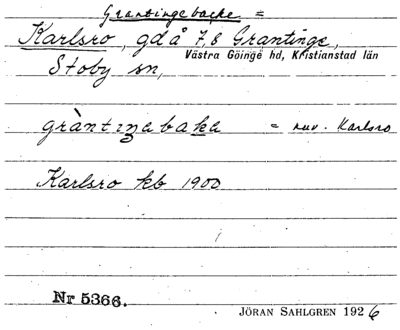 Grantingebacke =
Karlsro, gd å 7,8 Grantinge,
Västra Göinge hd, Kristianstad län
Stoby sn,
gràntıŋabaka = nuv. Karlsro
Karlsro kb 1900
Nr 5366.
JÖRAN SAHLGREN 1926